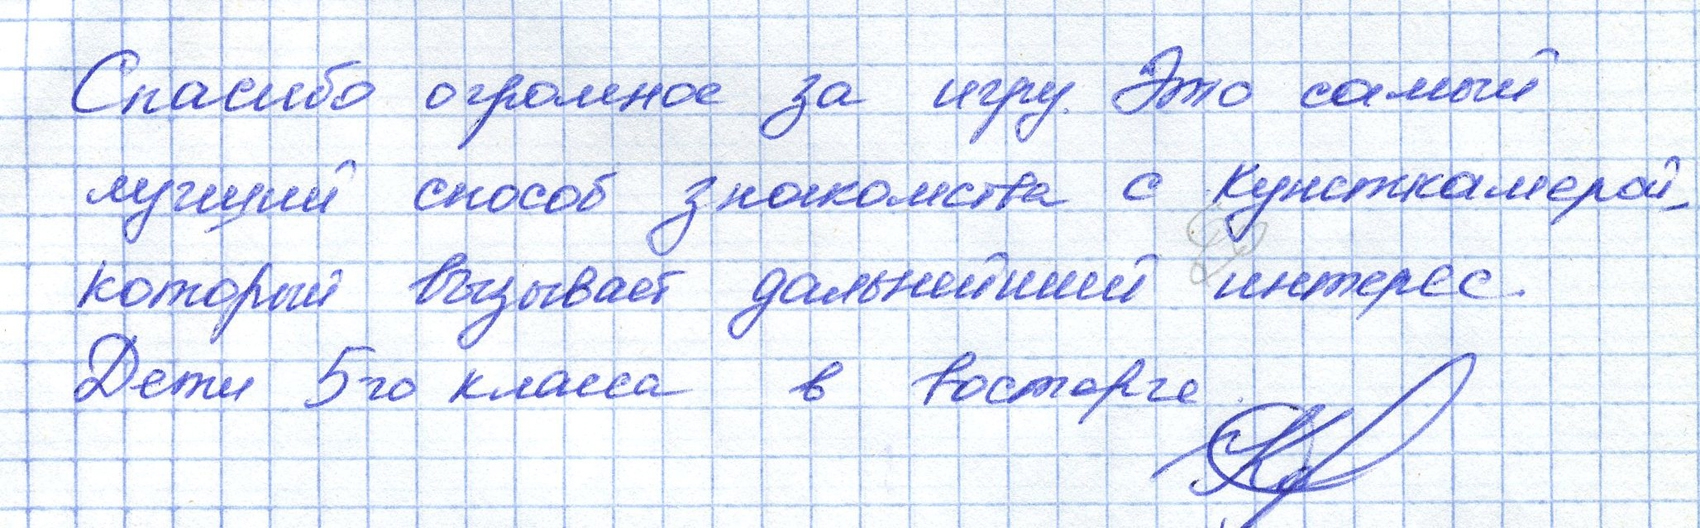 Спасибо огромное за игру. Это самый
лучший способ знакомства с Кунсткамерой,
который вызывает дальнейший интерес.
Дети 5-го класса в восторге.